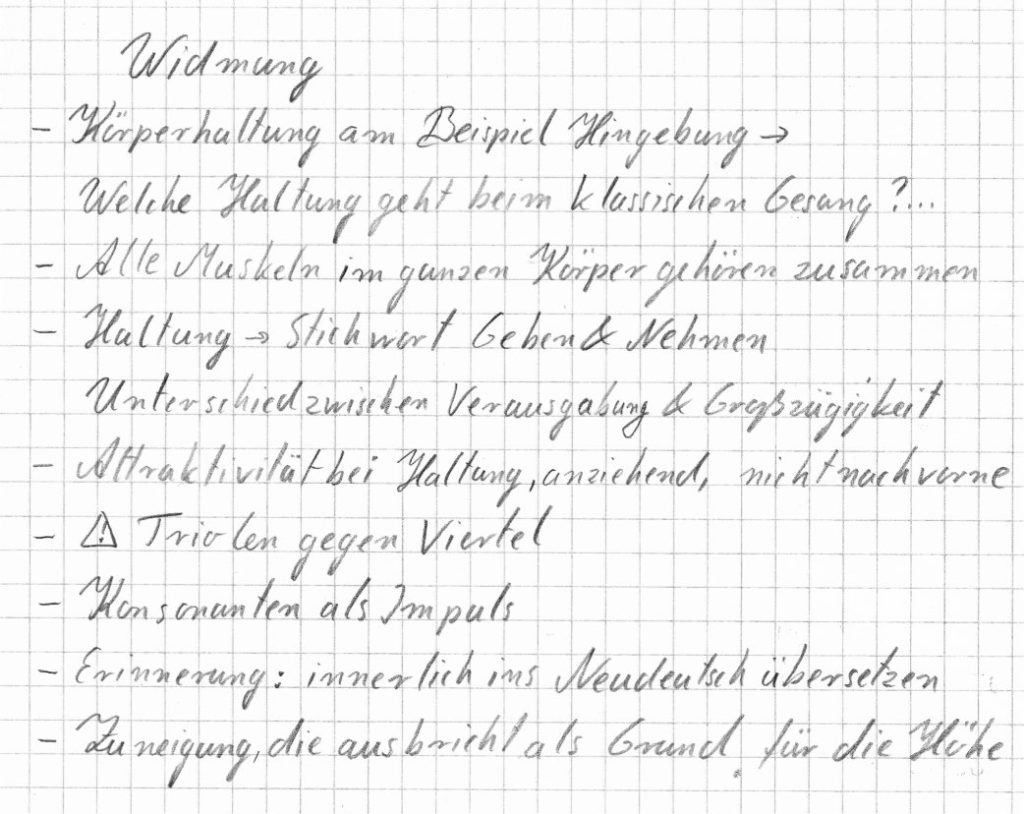 Widmung
- Körperhaltung am Beispiel Hingebung →
Welche Haltung geht beim klassischen Gesang?...
- Alle Muskeln im ganzen Körper gehören zusammen
- Haltung → Stichwort Geben & Nehmen
Unterschied zwischen Verausgabung & Großzügigkeit
- Attraktivität bei Haltung, anziehend, nicht nach vorne
- ⚠ Triolen gegen Viertel
- Konsonanten als Impuls
- Erinnerung: innerlich ins Neudeutsch übersetzen
- Zuneigung, die ausbricht als Grund für die Höhe